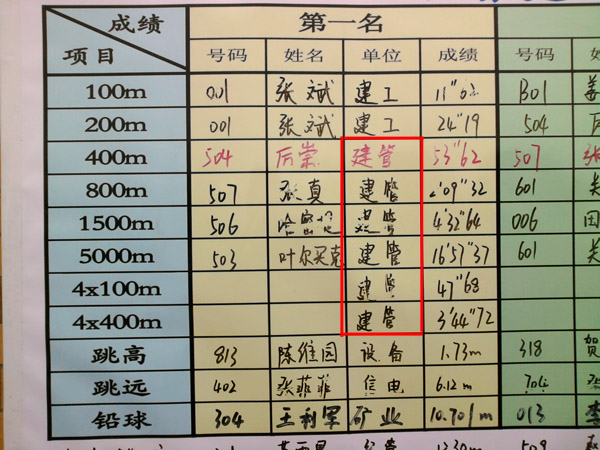 成绩 第一名
项目 号码 姓名 单位 成绩 号码
100m 001 张斌 建工 11"02 B01
200m 001 张斌 建工 24"19 504
400m 504 厉崇 建管 53"62 507
800m 507 真 建管 2'09"32 601
1500m 506 建管 4'32"64 006 田
5000m 503 叶尔买克 建管 16'57"37 601
4x100m 建管 47"68
4x400m 建管 3'44"72
跳高 813 陈维园 设备 1.73m 318 贺
跳远 402 张菲菲 信电 6.12m 704 张
铅球 304 王利军 矿业 10.701m 013 李